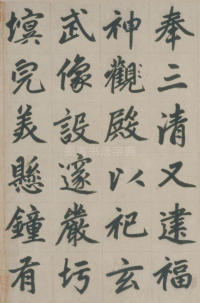 奉三清又建福
神觀殿以祀玄
武像設邃嚴圬
塓完美懸鐘有